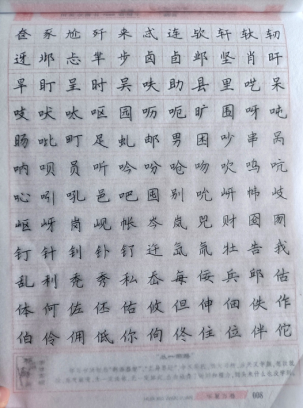 奁豕尬歼来忒连欤轩轪轫
迓邶忐芈步卤卣邺坚肖旰
旱盯呈时吴呋助县里呓呆
吱吠呔呕园呖呃旷围呀吨
旸吡町足虬邮男困吵串呙
呐呗员听吟吩呛吻吹呜吭
吣吲吼邑吧囤别吮岍帏岐
岖岈岗岘帐岑岚兕财囵囫
钉针钊钋钌迕氙氚牡告我
乱利秃秀私岙每佞兵邱估
体何佐伾佑攸但伸佃佚作
伯伶佣低你佝佟住位伴佗